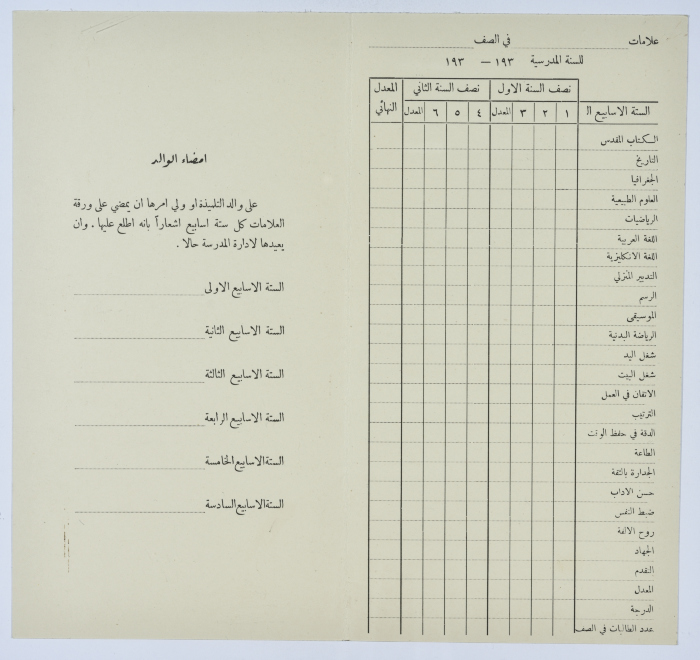 علامات في الصف
للسنة المدرسية ١٩٣ — ١٩٣
نصف السنة الاول نصف السنة الثاني المعدل النهائي
الستة الاسابيع ال ١ ٢ ٣ المعدل ٤ ٥ ٦ المعدل
الكتاب المقدس
التاريخ
الجغرافيا
العلوم الطبيعية
الرياضيات
اللغة العربية
اللغة الانكليزية
التدبير المنزلي
الرسم
الموسيقى
الرياضة البدنية
شغل اليد
شغل البيت
الاتقان في العمل
الترتيب
الدقة في حفظ الوقت
الطاعة
الجدارة بالثقة
حسن الاداب
ضبط النفس
روح الالفة
الجهاد
التقدم
المعدل
الدرجة
عدد الطالبات في الصف
امضاء الوالد
على والد التلميذة او ولي امرها ان يمضي على ورقة
العلامات كل ستة اسابيع اشعاراً بانه اطلع عليها . وان
يعيدها لادارة المدرسة حالا .
الستة الاسابيع الاولى
الستة الاسابيع الثانية
الستة الاسابيع الثالثة
الستة الاسابيع الرابعة
الستة الاسابيع الخامسة
الستة الاسابيع السادسة